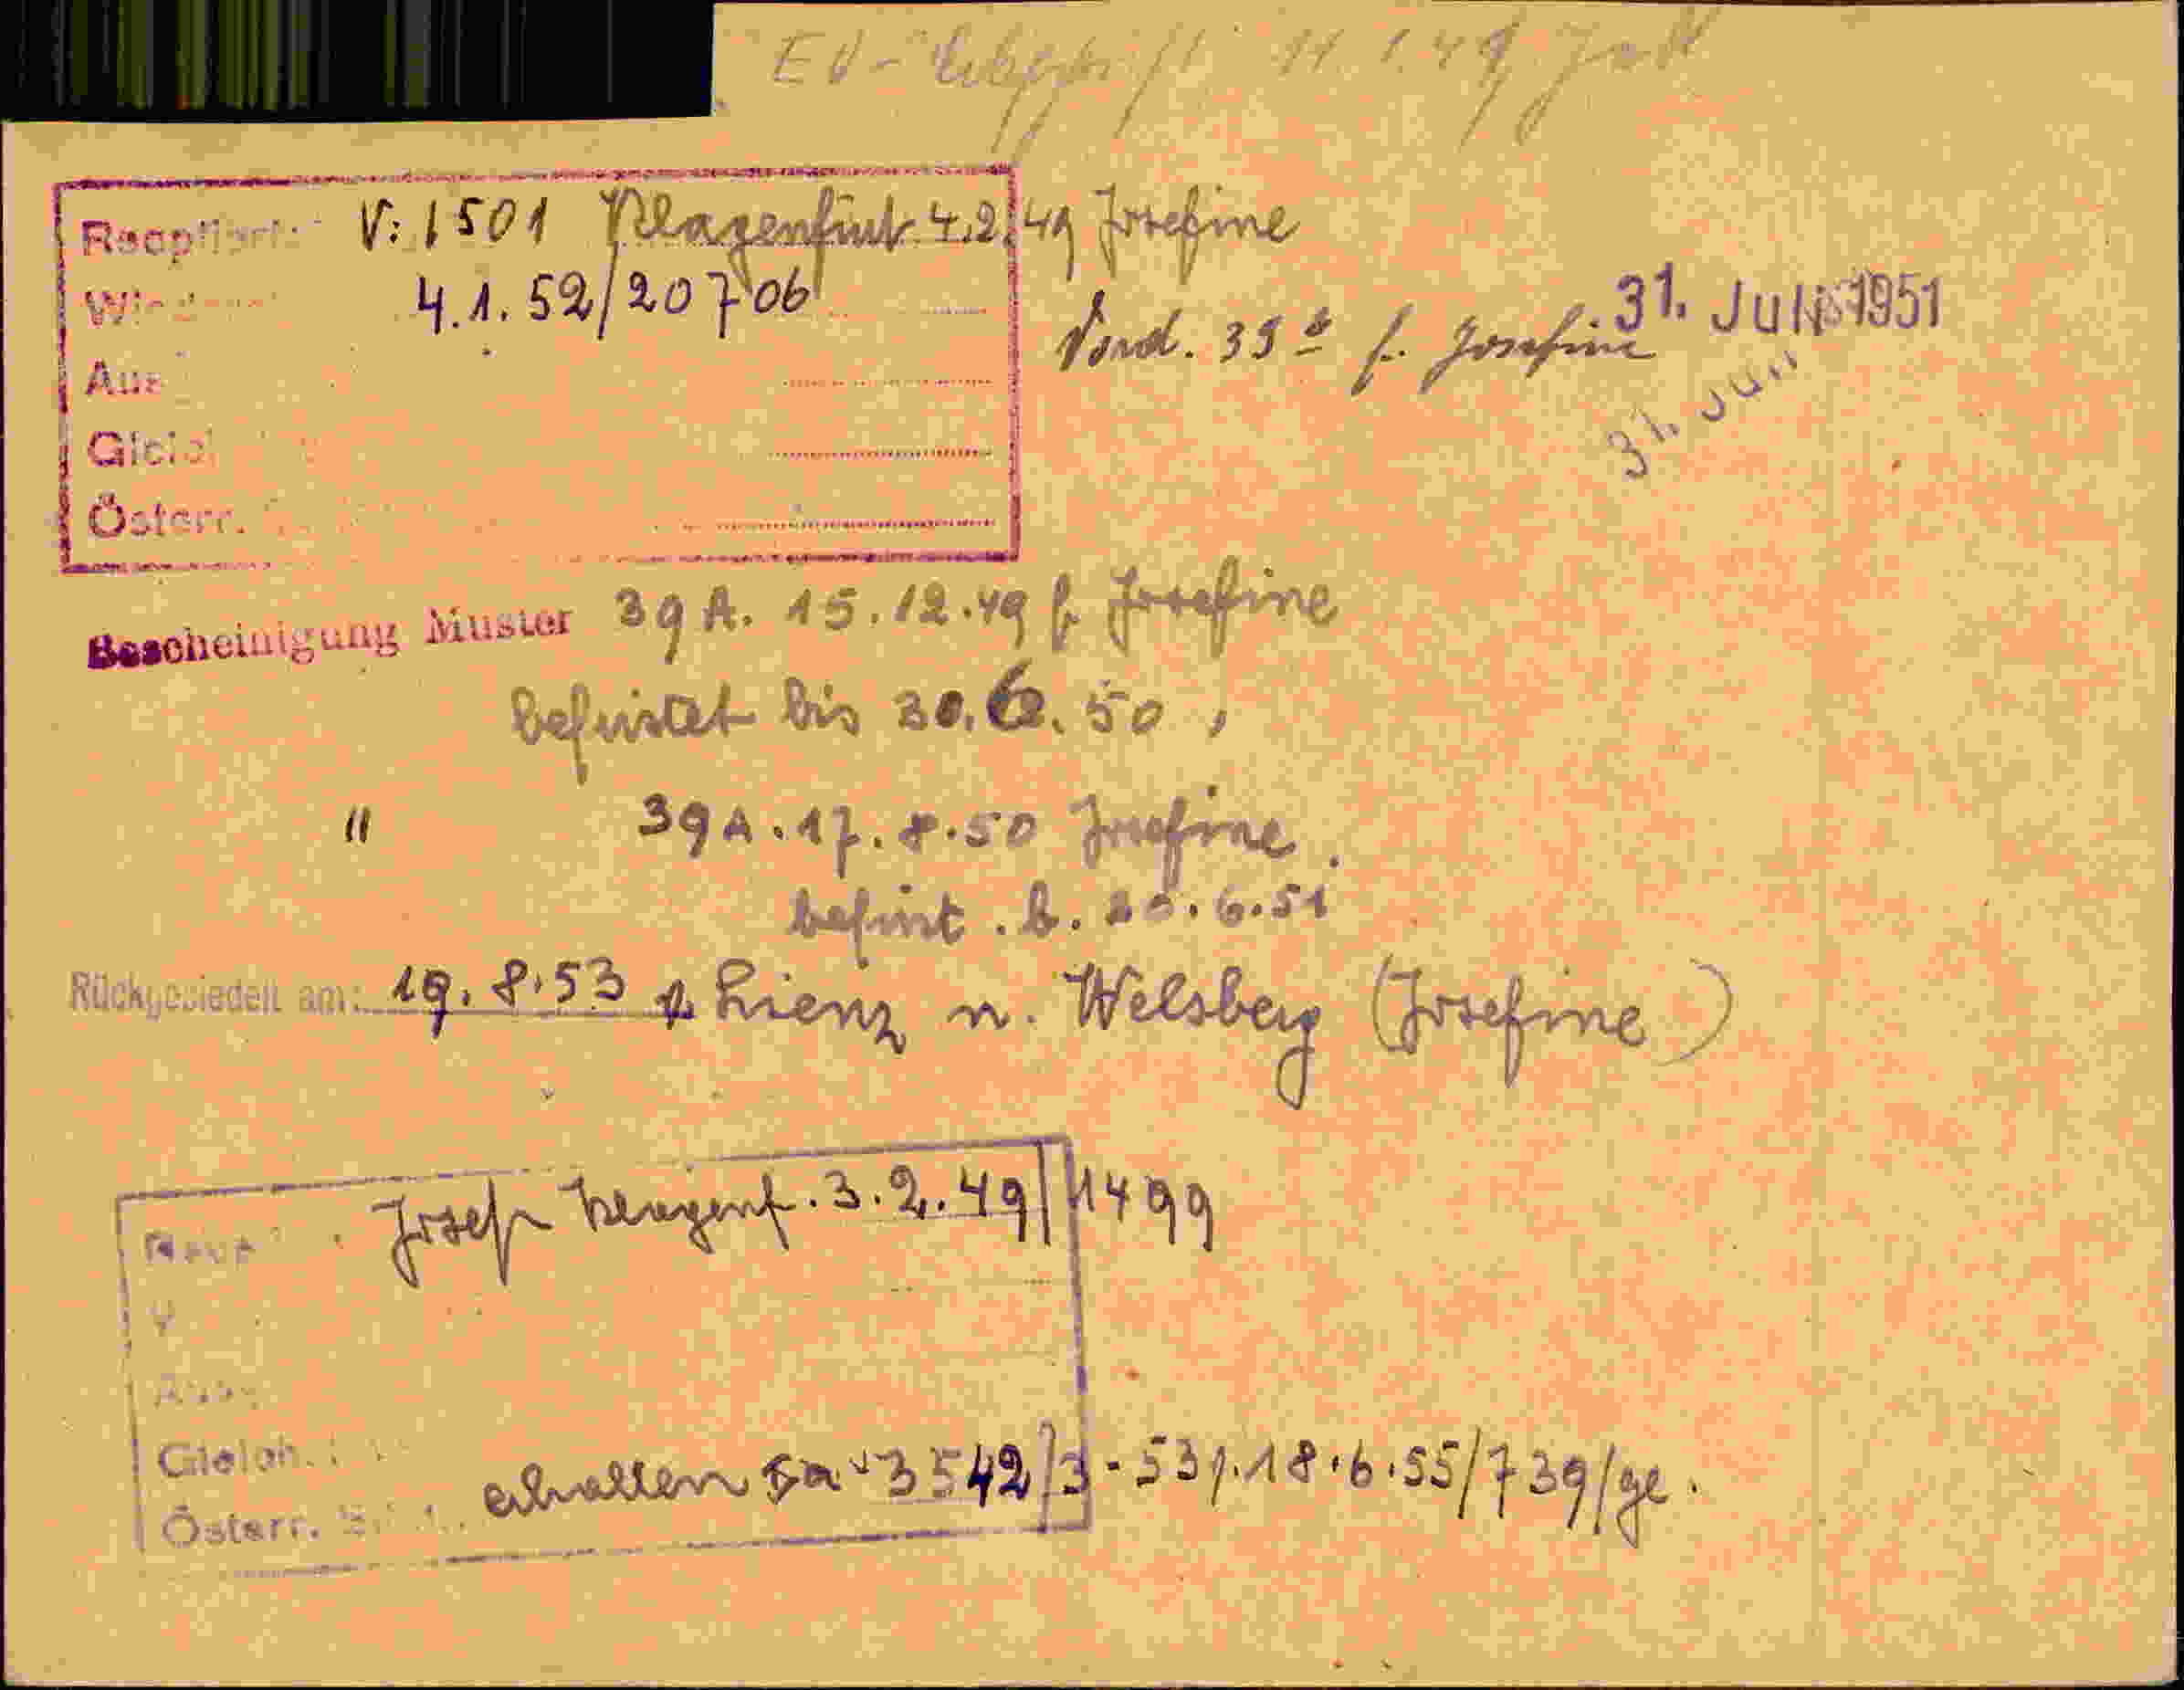 EU- 11.1.49
Reoptiert: V: 1501 Klagenfurt 4.2.49 Josefine
4.1.52/20706
Vord. 39a f. Josefine 31. Juli 1951
31. Juli
Aus
Gleich
Österr.
Bescheinigung Muster 39 A. 15.12.49 f. Josefine
befristet bis 30.6.50,
" 39 A. 17.8.50 Josefine.
befrist. b. 6.51
Rückgesiedelt am: 19.8.53 Lienz n. Welsberg (Josefine)
Josef Klagenf. 3.2.49/1499
Gleich.
Österr. erhalten 3542/3-53 18.6.55/739/ge.